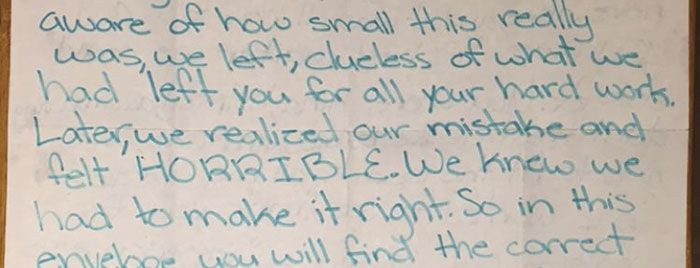 aware of how small this really
was, we left, clueless of what we
had left you for all your hard work.
Later, we realized our mistake and
felt HORRIBLE. We knew we
had to make it right. So in this
envelope you will find the correct